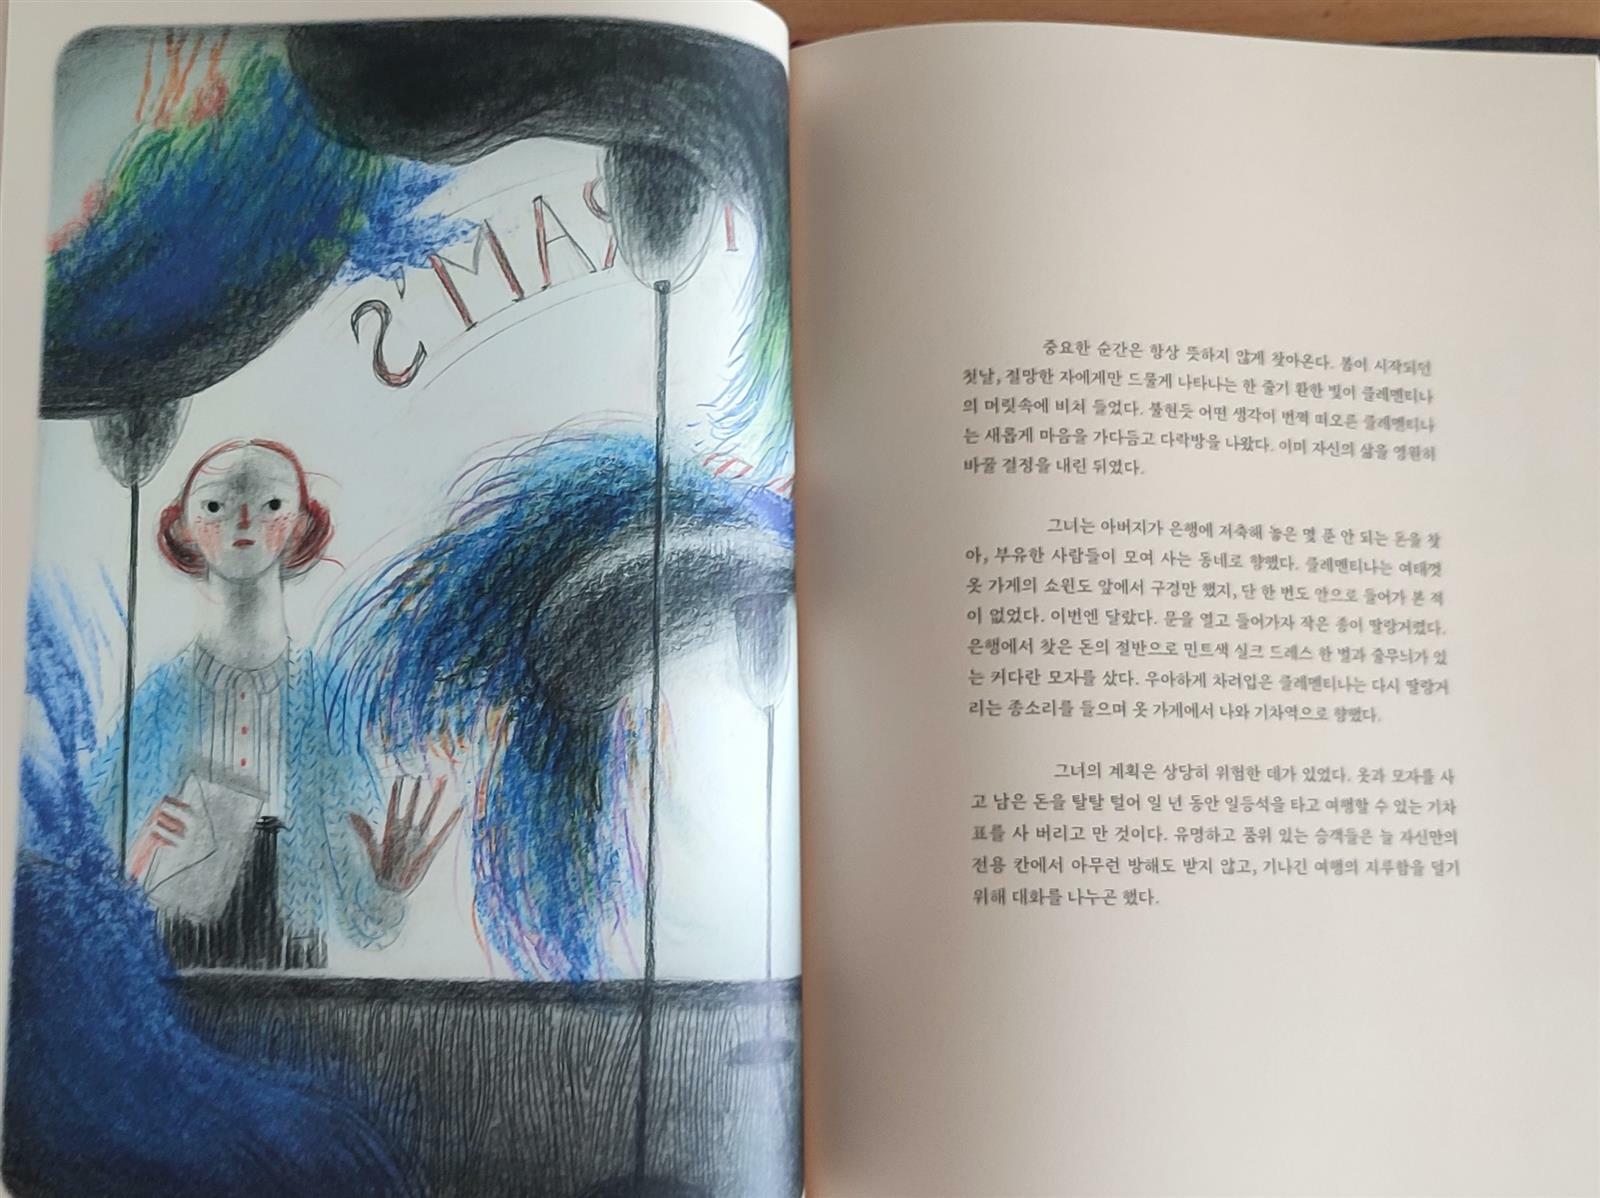 S'MAR
중요한 순간은 항상 뜻하지 않게 찾아온다. 봄이 시작되던
첫날, 절망한 자에게만 드물게 나타나는 한 줄기 환한 빛이 클레멘티나
의 머릿속에 비쳐 들었다. 불현듯 어떤 생각이 번쩍 떠오른 클레멘티나
는 새롭게 마음을 가다듬고 다락방을 나왔다. 이미 자신의 삶을 영원히
바꿀 결정을 내린 뒤였다.
그녀는 아버지가 은행에 저축해 놓은 몇 푼 안 되는 돈을 찾
아, 부유한 사람들이 모여 사는 동네로 향했다. 클레멘티나는 여태껏
옷 가게의 쇼윈도 앞에서 구경만 했지, 단 한 번도 안으로 들어가 본 적
이 없었다. 이번엔 달랐다. 문을 열고 들어가자 작은 종이 딸랑거렸다.
은행에서 찾은 돈의 절반으로 민트색 실크 드레스 한 벌과 줄무늬가 있
는 커다란 모자를 샀다. 우아하게 차려입은 클레멘티나는 다시 딸랑거
리는 종소리를 들으며 옷 가게에서 나와 기차역으로 향했다.
그녀의 계획은 상당히 위험한 데가 있었다. 옷과 모자를 사
고 남은 돈을 탈탈 털어 일 년 동안 일등석을 타고 여행할 수 있는 기차
표를 사 버리고 만 것이다. 유명하고 품위 있는 승객들은 늘 자신만의
전용 칸에서 아무런 방해도 받지 않고, 기나긴 여행의 지루함을 덜기
위해 대화를 나누곤 했다.